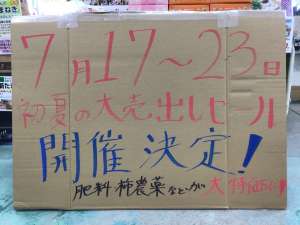 7月17～23日
初夏の大売出しセール
開催決定！
肥料 種 農薬 などが 大特価